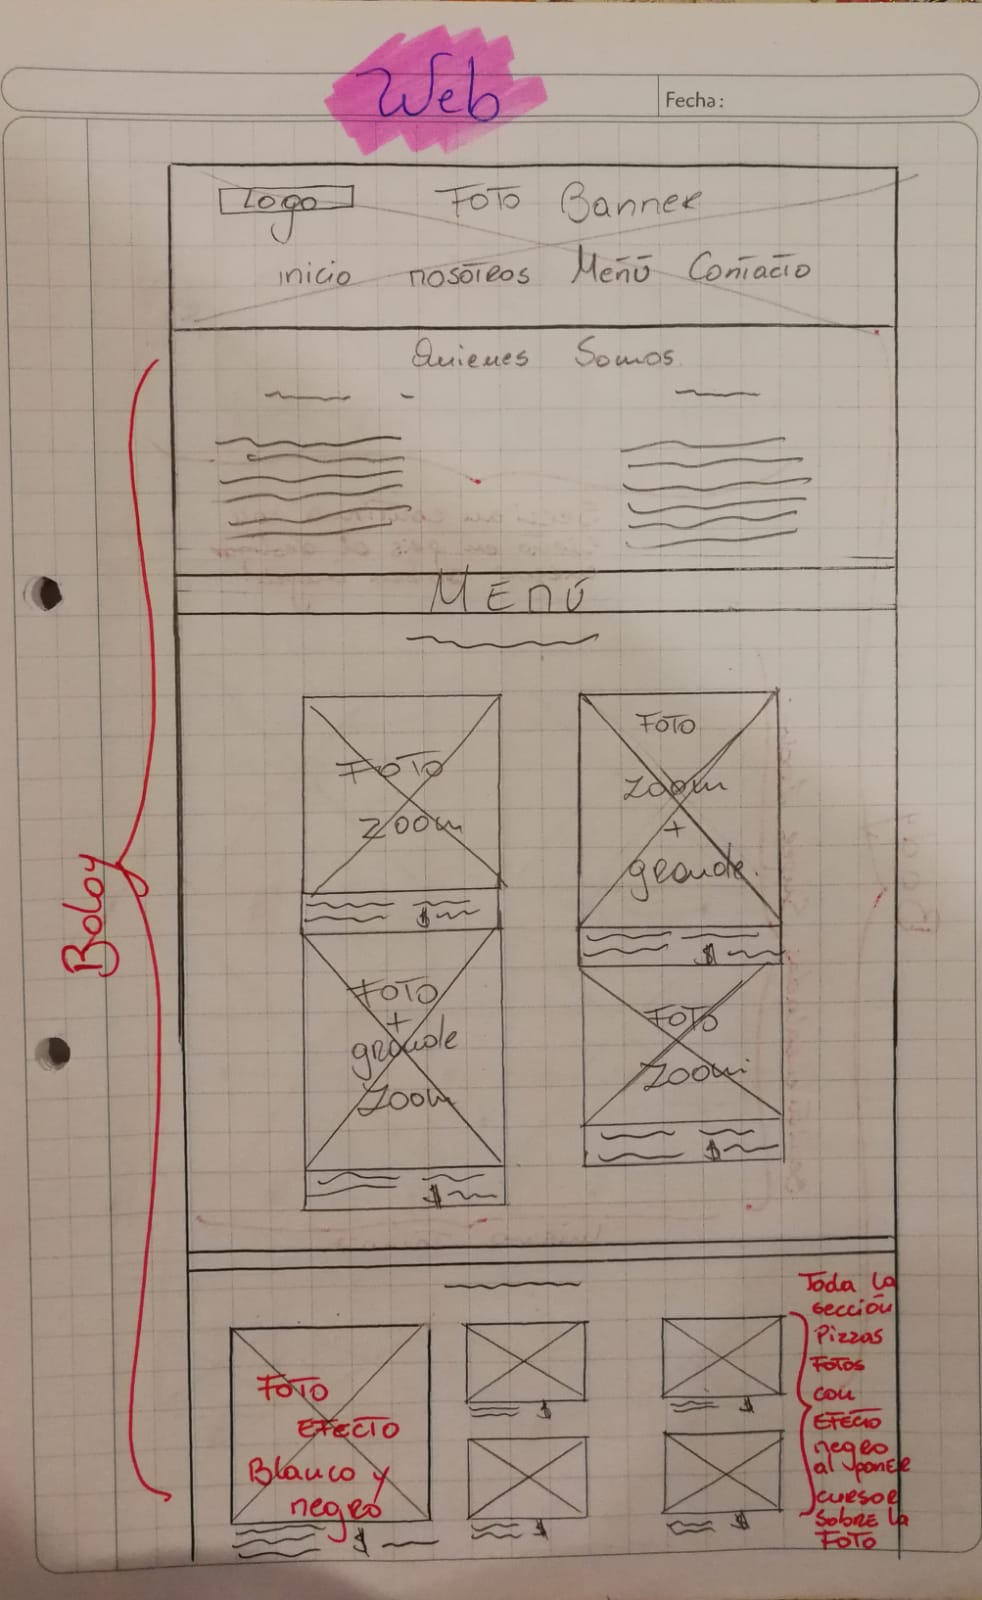 Web
Fecha:
Logo
FOTO Banner
inicio nosotros Menú Contacto
Quienes Somos
MENÚ
FOTO
ZOOM
FOTO
ZOOM
+
grande.
$
$
FOTO
+
grande
ZOOM
FOTO
ZOOM
$
$
Boloy
FOTO
EFECTO
Blanco y
negro
$
$
$
$
$
Toda la
sección
Pizzas
Fotos
con
EFECTO
negro
al poner
cursor
SOBRE la
FOTO